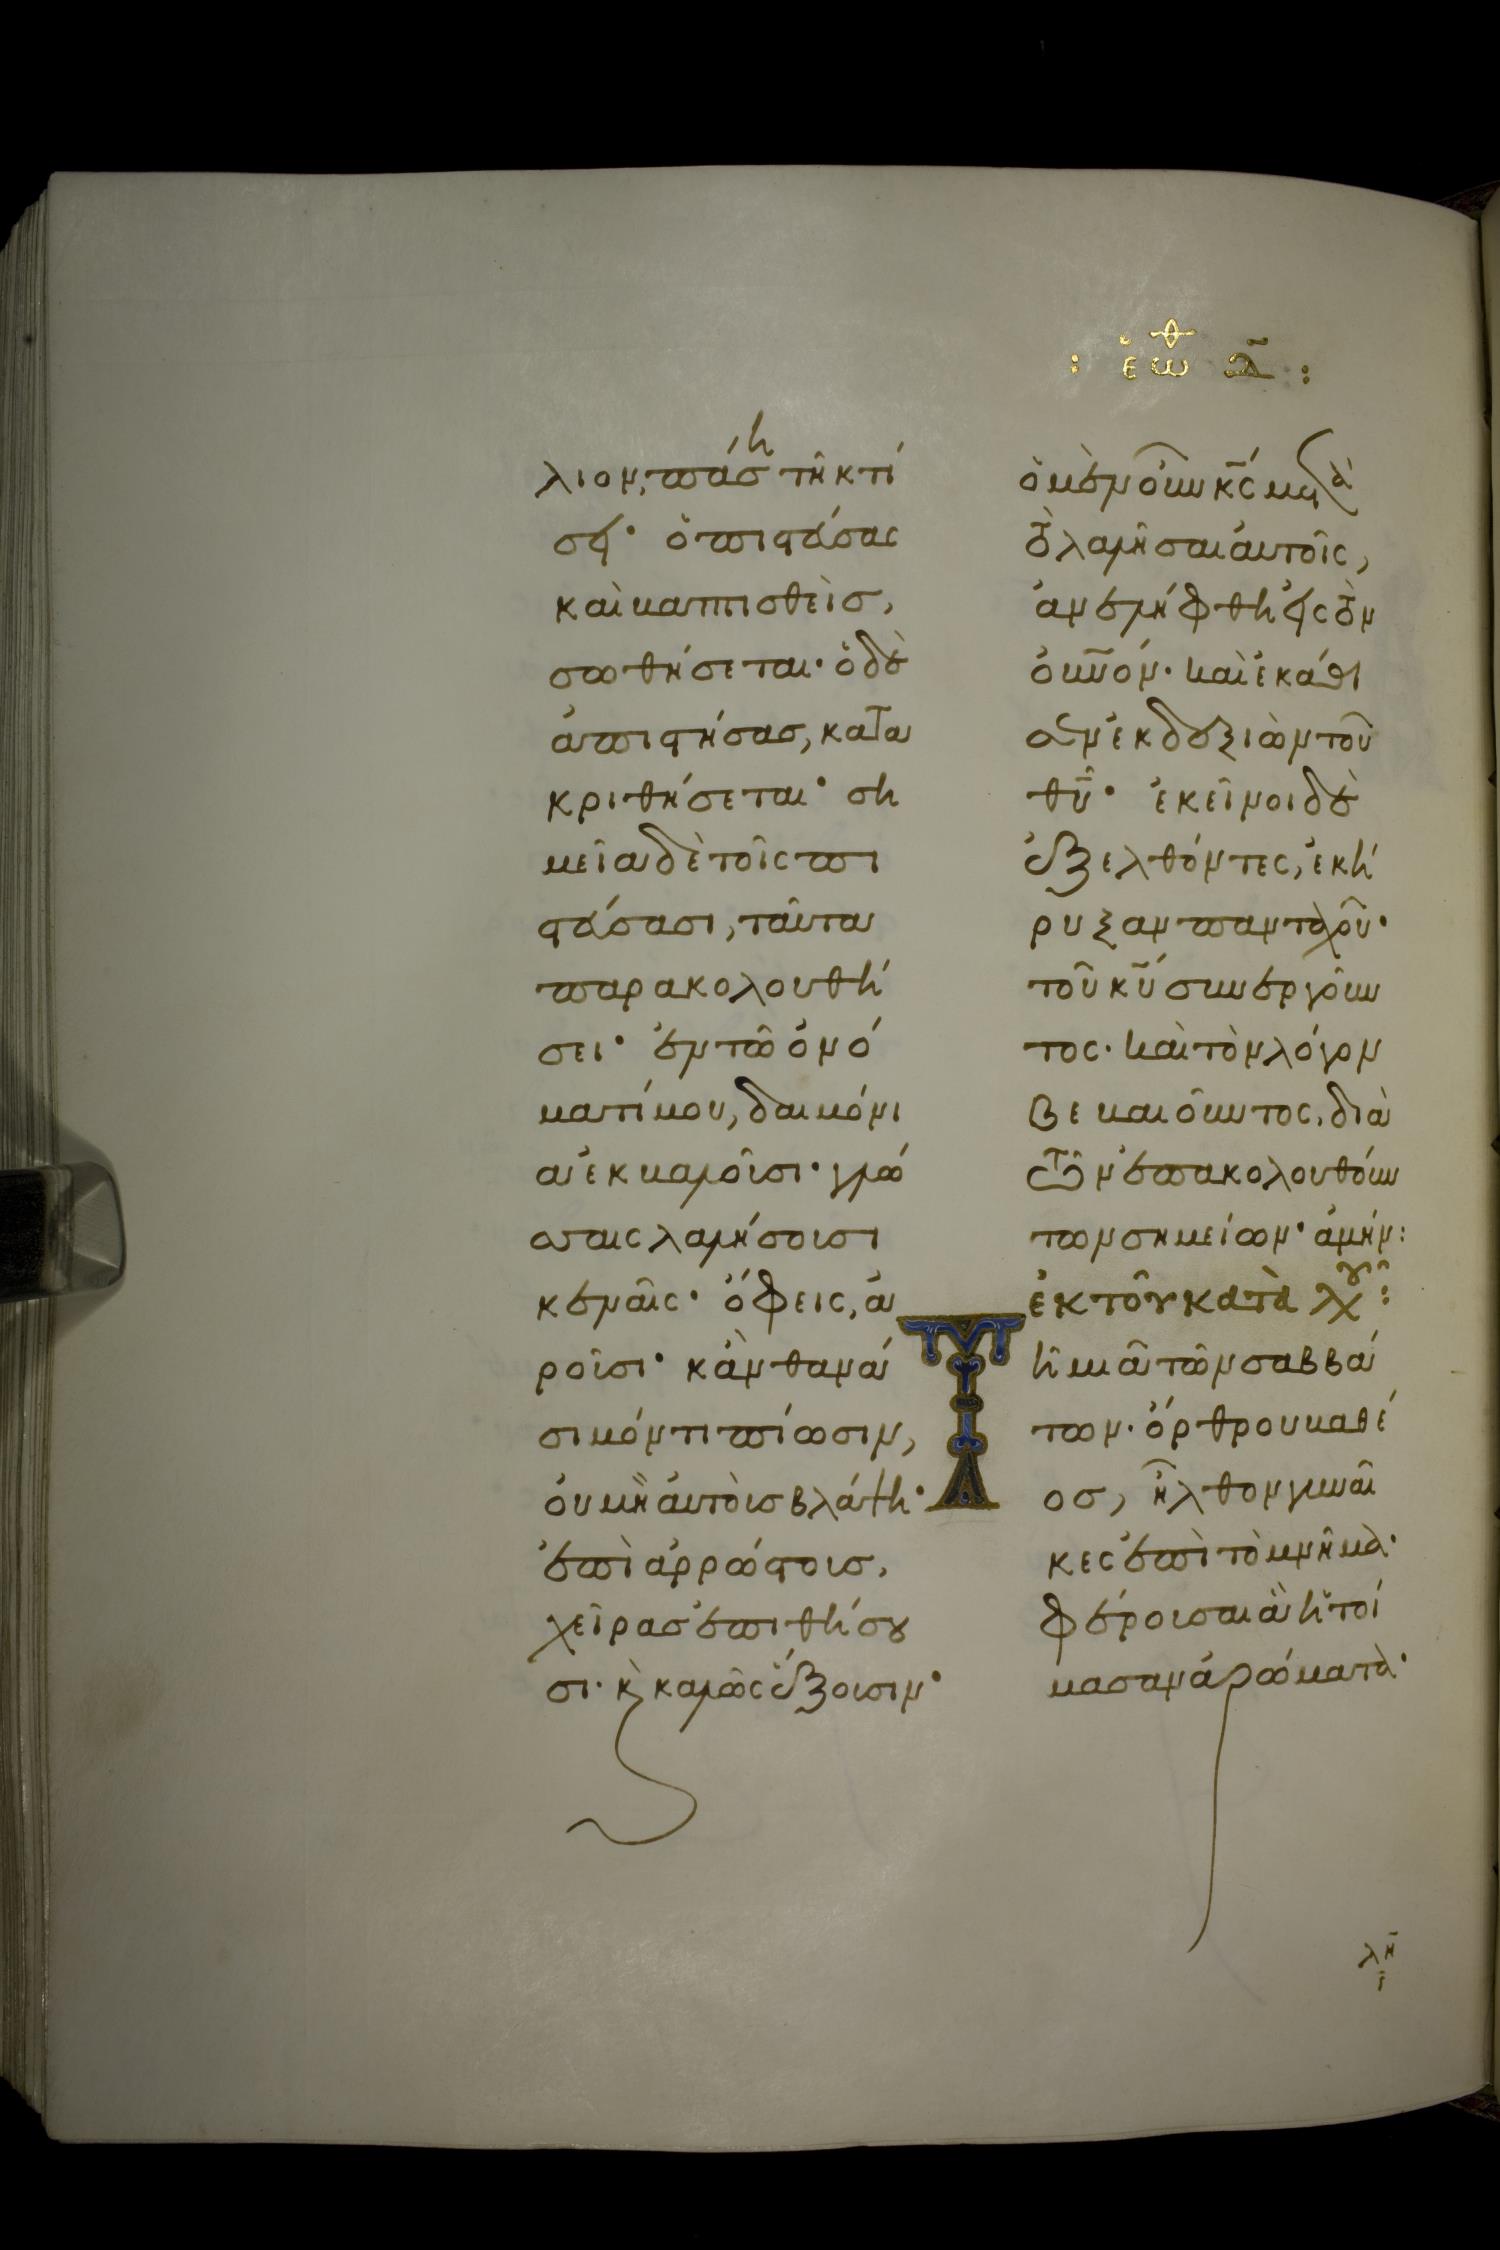 : ἑωθ Δ :
λιον, πάση τῆ κτί
σει· ὁ πιστεύσας
καὶ βαπτισθεὶσ,
σωθήσεται· ὁ δὲ
ἀπιστήσασ, κατα
κριθήσεται· ση
μεῖα δὲ τοῖς πι
στεύσασι, ταῦτα
παρακολουθή
σει· ἐν τῶ ὀνό
ματί μου, δαιμόνι
α ἐκβαλοῦσι· γλώ
σσαις λαλήσουσι
καιναῖς· ὄφεις, ἀ
ροῦσι· κἂν θανά
σιμόν τι πίωσιν,
οὐ μὴ αὐτοὺσ βλάψη·
ἐπὶ ἀρρώστουσ,
χεῖρασ ἐπιθήσου
σι· κ̀ καλῶς ἕξουσιν·
ὁ μὲν οὖν κ̅ς̅ μετὰ
τὸ λαλῆσαι αὐτοῖς,
ἀνελήφθη εἰς τὸν
οὐ̅ν̅όν· καὶ ἐκάθι
σεν ἐκ δεξιῶν τοῦ
θ̅υ̅· ἐκεῖνοι δὲ
ἐξελθόντες, ἐκή
ρυξαν πανταχοῦ·
τοῦ κ̅υ̅ συνεργοῦν
τος· καὶ τὸν λόγον
βεβαιοῦντος, διὰ
τῶν ἐπακολουθούν
των σημείων· ἀμήν:
ἐκ τοῦ κατὰ λουκ:
Τῆ μιᾶ τῶν σαββά
των· ὄρθρου βαθέ
οσ, ἦλθον γυναῖ
κες ἐπὶ τὸ μνῆμα·
φέρουσαι ἃ ἡτοί
μασαν ἀρώματα·